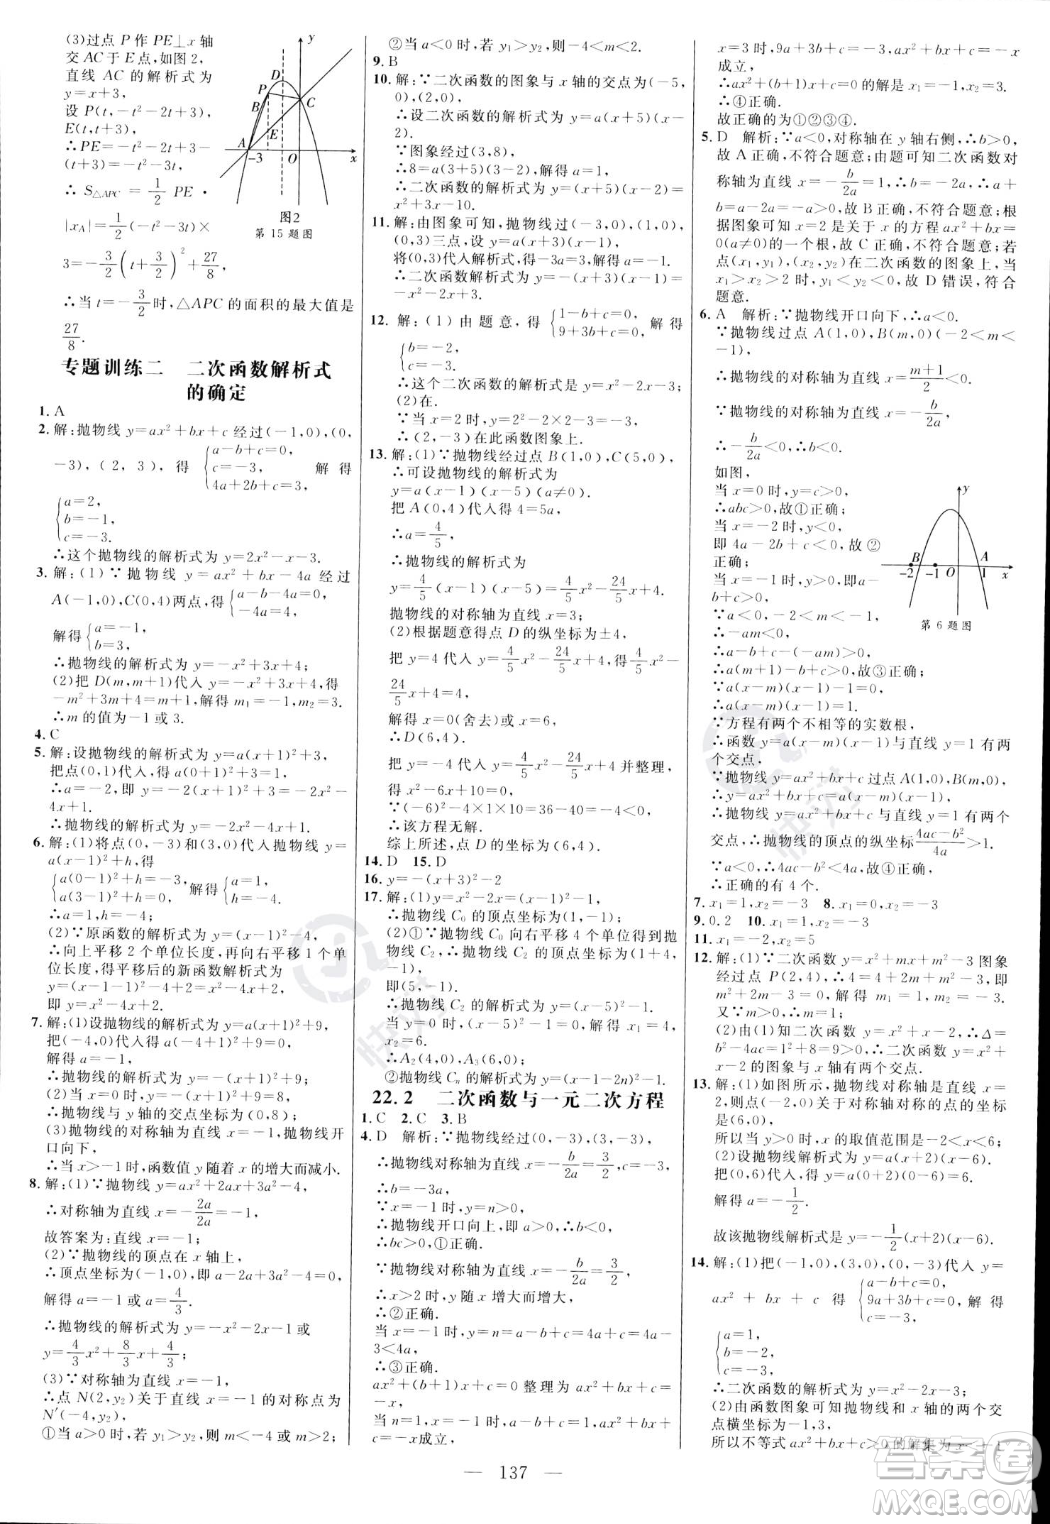 (3)过点 P 作 PE⊥x 轴
交 AC 于 E 点,如图 2,
直线 AC 的解析式为
y=x+3,
设 P(t,-t²-2t+3),
E(t,t+3),
∴PE=-t²-3t.
∴S△APC=1/2 PE·
|xA|=1/2(-t²-3t)×
3=-3/2(t+3/2)²+27/8
∴当 t=-3/2时,△APC 的面积的最大值是
27/8.
y
D
P
B
C
E
A
-3
O
x
图2
第 15 题图
专题训练二 二次函数解析式
的确定
1. A
2. 解:抛物线 y=ax²+bx+c 经过(-1,0),(0,
-3),(2,3),得{a-b+c=0, c=-3, 4a+2b+c=3. 解得
{a=2, b=-1, c=-3.
∴这个抛物线的解析式为 y=2x²-x-3.
3. 解:(1)∵抛物线 y=ax²+bx-4a 经过
A(-1,0),C(0,4)两点,得{a-b-4a=0, -4a=4.
解得{a=-1, b=3,
∴抛物线的解析式为 y=-x²+3x+4.
(2)把 D(m,m+1)代入 y=-x²+3x+4,得
-m²+3m+4=m+1,解得 m₁=-1,m₂=3.
∴m 的值为-1 或 3.
4. C
5. 解:设抛物线的解析式为 y=a(x+1)²+3,
把点(0,1)代入,得 a(0+1)²+3=1.
∴a=-2,即 y=-2(x+1)²+3=-2x²-
4x+1.
∴抛物线的解析式为 y=-2x²-4x+1.
6. 解:(1)将点(0,-3)和(3,0)代入抛物线 y=
a(x-1)²+h,得
{a(0-1)²+h=-3, a(3-1)²+h=0. 解得{a=1, h=-4.
∴a=1,h=-4;
(2)∵原函数解析式为 y=(x-1)²-4,
∴向上平移 2 个单位长度,再向右平移 1 个单
位长度,得平移后的新函数解析式为
y=(x-1-1)²-4+2=(x-2)²-2,
即 y=x²-4x+2.
7. 解:(1)设抛物线的解析式为 y=a(x+1)²+9,
把(-4,0)代入,得 a(-4+1)²+9=0,
解得 a=-1.
∴抛物线的解析式为 y=-(x+1)²+9;
(2)当 x=0 时,y=-(0+1)²+9=8,
∴抛物线与 y 轴的交点坐标为(0,8);
(3)抛物线的对称轴为直线 x=-1,抛物线开
口向下,
∴当 x>-1 时,函数值 y 随着 x 的增大而减小.
8. 解:(1)∵抛物线 y=ax²+2ax+3a²-4,
∴对称轴为直线 x=-2a/2a=-1.
故答案为:直线 x=-1.
(2)∵抛物线的顶点在 x 轴上,
∴顶点坐标为(-1,0),即 a-2a+3a²-4=0,
解得 a=-1 或 a=4/3,
∴抛物线的解析式为 y=-x²-2x-1 或
y=4/3x²+8/3x+4/3;
(3)∵对称轴为直线 x=-1,
∴点 N(2,y₂)关于直线 x=-1 的对称点为
N′(-4,y₂),
①当 a>0 时,若 y₁>y₂,则 m<-4 或 m>2;
②当 a<0 时,若 y₁>y₂,则-4<m<2.
9. B
10. 解:∵二次函数的图象与 x 轴的交点为(-5,
0),(2,0),
∴设二次函数的解析式为 y=a(x+5)(x-
2).
∵图象经过(3,8),
∴8=a(3+5)(3-2),解得 a=1,
∴二次函数的解析式为 y=(x+5)(x-2)=
x²+3x-10.
11. 解:由图象可知,抛物线过(-3,0),(1,0),
(0,3)三点,设 y=a(x+3)(x-1),
将(0,3)代入解析式,得-3a=3,a=-1.
∴二次函数解析式为 y=-(x+3)(x-1)=
-x²-2x+3.
12. 解:(1)由题意,得{1-b+c=0, 9+3b+c=0. 解得
{b=-2, c=-3.
∴这个二次函数的解析式是 y=x²-2x-3;
(2)在.
∵当 x=2 时,y=2²-2×2-3=-3,
∴(2,-3)在此函数图象上.
13. 解:(1)∵抛物线经过点 B(1,0),C(5,0).
∴可设抛物线的函数解析式为
y=a(x-1)(x-5)(a≠0).
把 A(0,4)代入得 4=5a,
∴a=4/5
∴抛物线的函数解析式为
y=4/5(x-1)(x-5)=4/5x²-24/5x+4.
抛物线的对称轴为直线 x=3;
(2)根据题意得点 D 的纵坐标为±4,
把 y=4 代入 y=4/5x²-24/5x+4,得4/5x²-
24/5x=0,
解得 x=0(舍去)或 x=6,
∴D(6,4).
把 y=-4 代入 y=4/5x²-24/5x+4 并整理,
得 x²-6x+10=0.
∵(-6)²-4×1×10=36-40=-4<0,
∴该方程无解.
综上所述,点 D 的坐标为(6,4).
14. D 15. D
16. y=-(x+2)²-3
17. 解:(1)∵y=x²-2x=(x-1)²-1,
∴抛物线 C₀ 的顶点坐标为(1,-1).
(2)①∵抛物线 C₀ 向右平移 4 个单位得到抛
物线 C₂,∴抛物线 C₂ 的顶点坐标为(1+4,-1),
即(5,-1).
∴抛物线 C₂ 的解析式为 y=(x-5)²-1.
当 y=0 时,(x-5)²-1=0,解得 x₁=4,x₂
=6.
∴A₂(4,0),A₃(6,0);
②抛物线 Cₙ 的解析式为 y=(x-1-2n)²-1.
22.2 二次函数与一元二次方程
1. C 2. C 3. B
4. D 解析:∵抛物线经过(0,-3),(3,-3),
∴抛物线对称轴为直线 x=-b/2a=3/2,
∴b=-3a,
∵抛物线开口向上,即 a>0,∴b<0,
∴bc>0,①正确.
∵抛物线对称轴为直线 x=-b/2a=3/2,
∴x>2 时,y 随 x 增大而增大,
∴②正确.
当 x=-1 时,y=a-b+c=a+3a-
3<4a,
∴③正确.
ax²+(b-1)x+c=0 整理为 ax²+bx+c
=x,
当 n=1,x=-1 时,a-b+c=ax²+bx+c
=-x成立,
x=3 时,9a+3b+c=0=ax²+bx+c=-x
成立,
∴ax²+(b+1)x+c=0 的解是 x₁=-1,x₂=3.
∴④正确.
故正确的为①②③④.
5. D 解析:∵a<0,对称轴在 y 轴右侧,∴b>0,
故 A 正确,不符合题意;由题可知二次函数对
称轴为直线 x=-b/2a=1,∴b=-2a,∴a+
b=a-2a=-a>0,故 B 正确,不符合题意;
根据图象可知 x=-2 是关于 x 的方程 ax²+bx+c=
0(a≠0)的一个根,故 C 正确,不符合题意;若
点(x₁,y₁),(x₂,y₂)在二次函数的图象上,当
x₂>x₁>1 时,y₂<y₁<0,故 D 错误,符合
题意.
6. A 解析:∵抛物线开口向下,∴a<0.
∵抛物线过点 A(1,0),B(m,0)(-2<m<
-1),
∴抛物线的对称轴为直线 x=(m+1)/2
∴抛物线的对称轴为直线 x=-b/2a<0,
∴-b/2a<0,∴b<0.
如图,
当 x=0 时,y=c>0,
∴abc>0,故①正确;
当 x=-2 时,y<0,
即 4a-2b+c<0,故②
正确;
当 x=-1 时,y>0,即 a-
b+c>0,
∵a<0,-2<m<-1,
∴-am<0;
∴a-b+c-am>0,
∴a(m+1)-b+c>0,故③正确;
∴a(x-m)(x-1)-1=0,
∴a(x-m)(x-1)=1,
∵方程有两个不相等的实数根,
∴函数 y=a(x-m)(x-1)与直线 y=1 有两
个交点,
∵抛物线 y=ax²+bx+c 过点 A(1,0),B(m,0),
∴y=ax²+bx+c=a(x-m)(x-1),
∴抛物线 y=ax²+bx+c 与直线 y=1 有两个
交点,∴抛物线的顶点的纵坐标(4ac-b²)/4a>1.
∵a<0,∴4ac-b²<4a,故④正确.
∴正确的有 4 个.
y
B
A
-2
-1
1
x
第 6 题图
7. x₁=1,x₂=-3 8. x₁=0,x₂=-3
9. 0,2 10. x₁=1,x₂=-3
11. x₁=-2,x₂=5
12. 解:(1)∵二次函数 y=x²+mx+m²-3 图象
经过点 P(2,4),∴4=4+2m+m²-3,
即 m²+2m-3=0,解得 m₁=1,m₂=-3.
又∵m>0,∴m=1;
(2)由(1)知二次函数 y=x²+x-2,∴Δ=
b²-4ac=1²+8=9>0,∴二次函数 y=x²+
x-2 的图象与 x 轴有两个交点.
13. 解:(1)如图,抛物线对称轴是直线 x=
2,则点(-2,0)关于对称轴对称的点的坐标
是(6,0),
所以当 y>0 时,x 的取值范围是-2<x<6;
(2)设抛物线的解析式为 y=a(x+2)(x-6).
把(0,6)代入,得 a(0+2)(0-6)=6,
解得 a=-1/2.
故该抛物线解析式为 y=-1/2(x+2)(x-6).
14. 解:(1)把(-1,0),(3,0),(0,-3)代入 y=
ax²+bx+c 得{a-b+c=0, 9a+3b+c=0, c=-3, 解得
{a=1, b=-2, c=-3,
∴二次函数的解析式为 y=x²-2x-3;
(2)由函数图象可知抛物线和 x 轴的两个交
点横坐标为-1,3,
所以不等式 ax²+bx+c>0 的解集为 x<-1
137
快对
答案卷
MXQE.COM